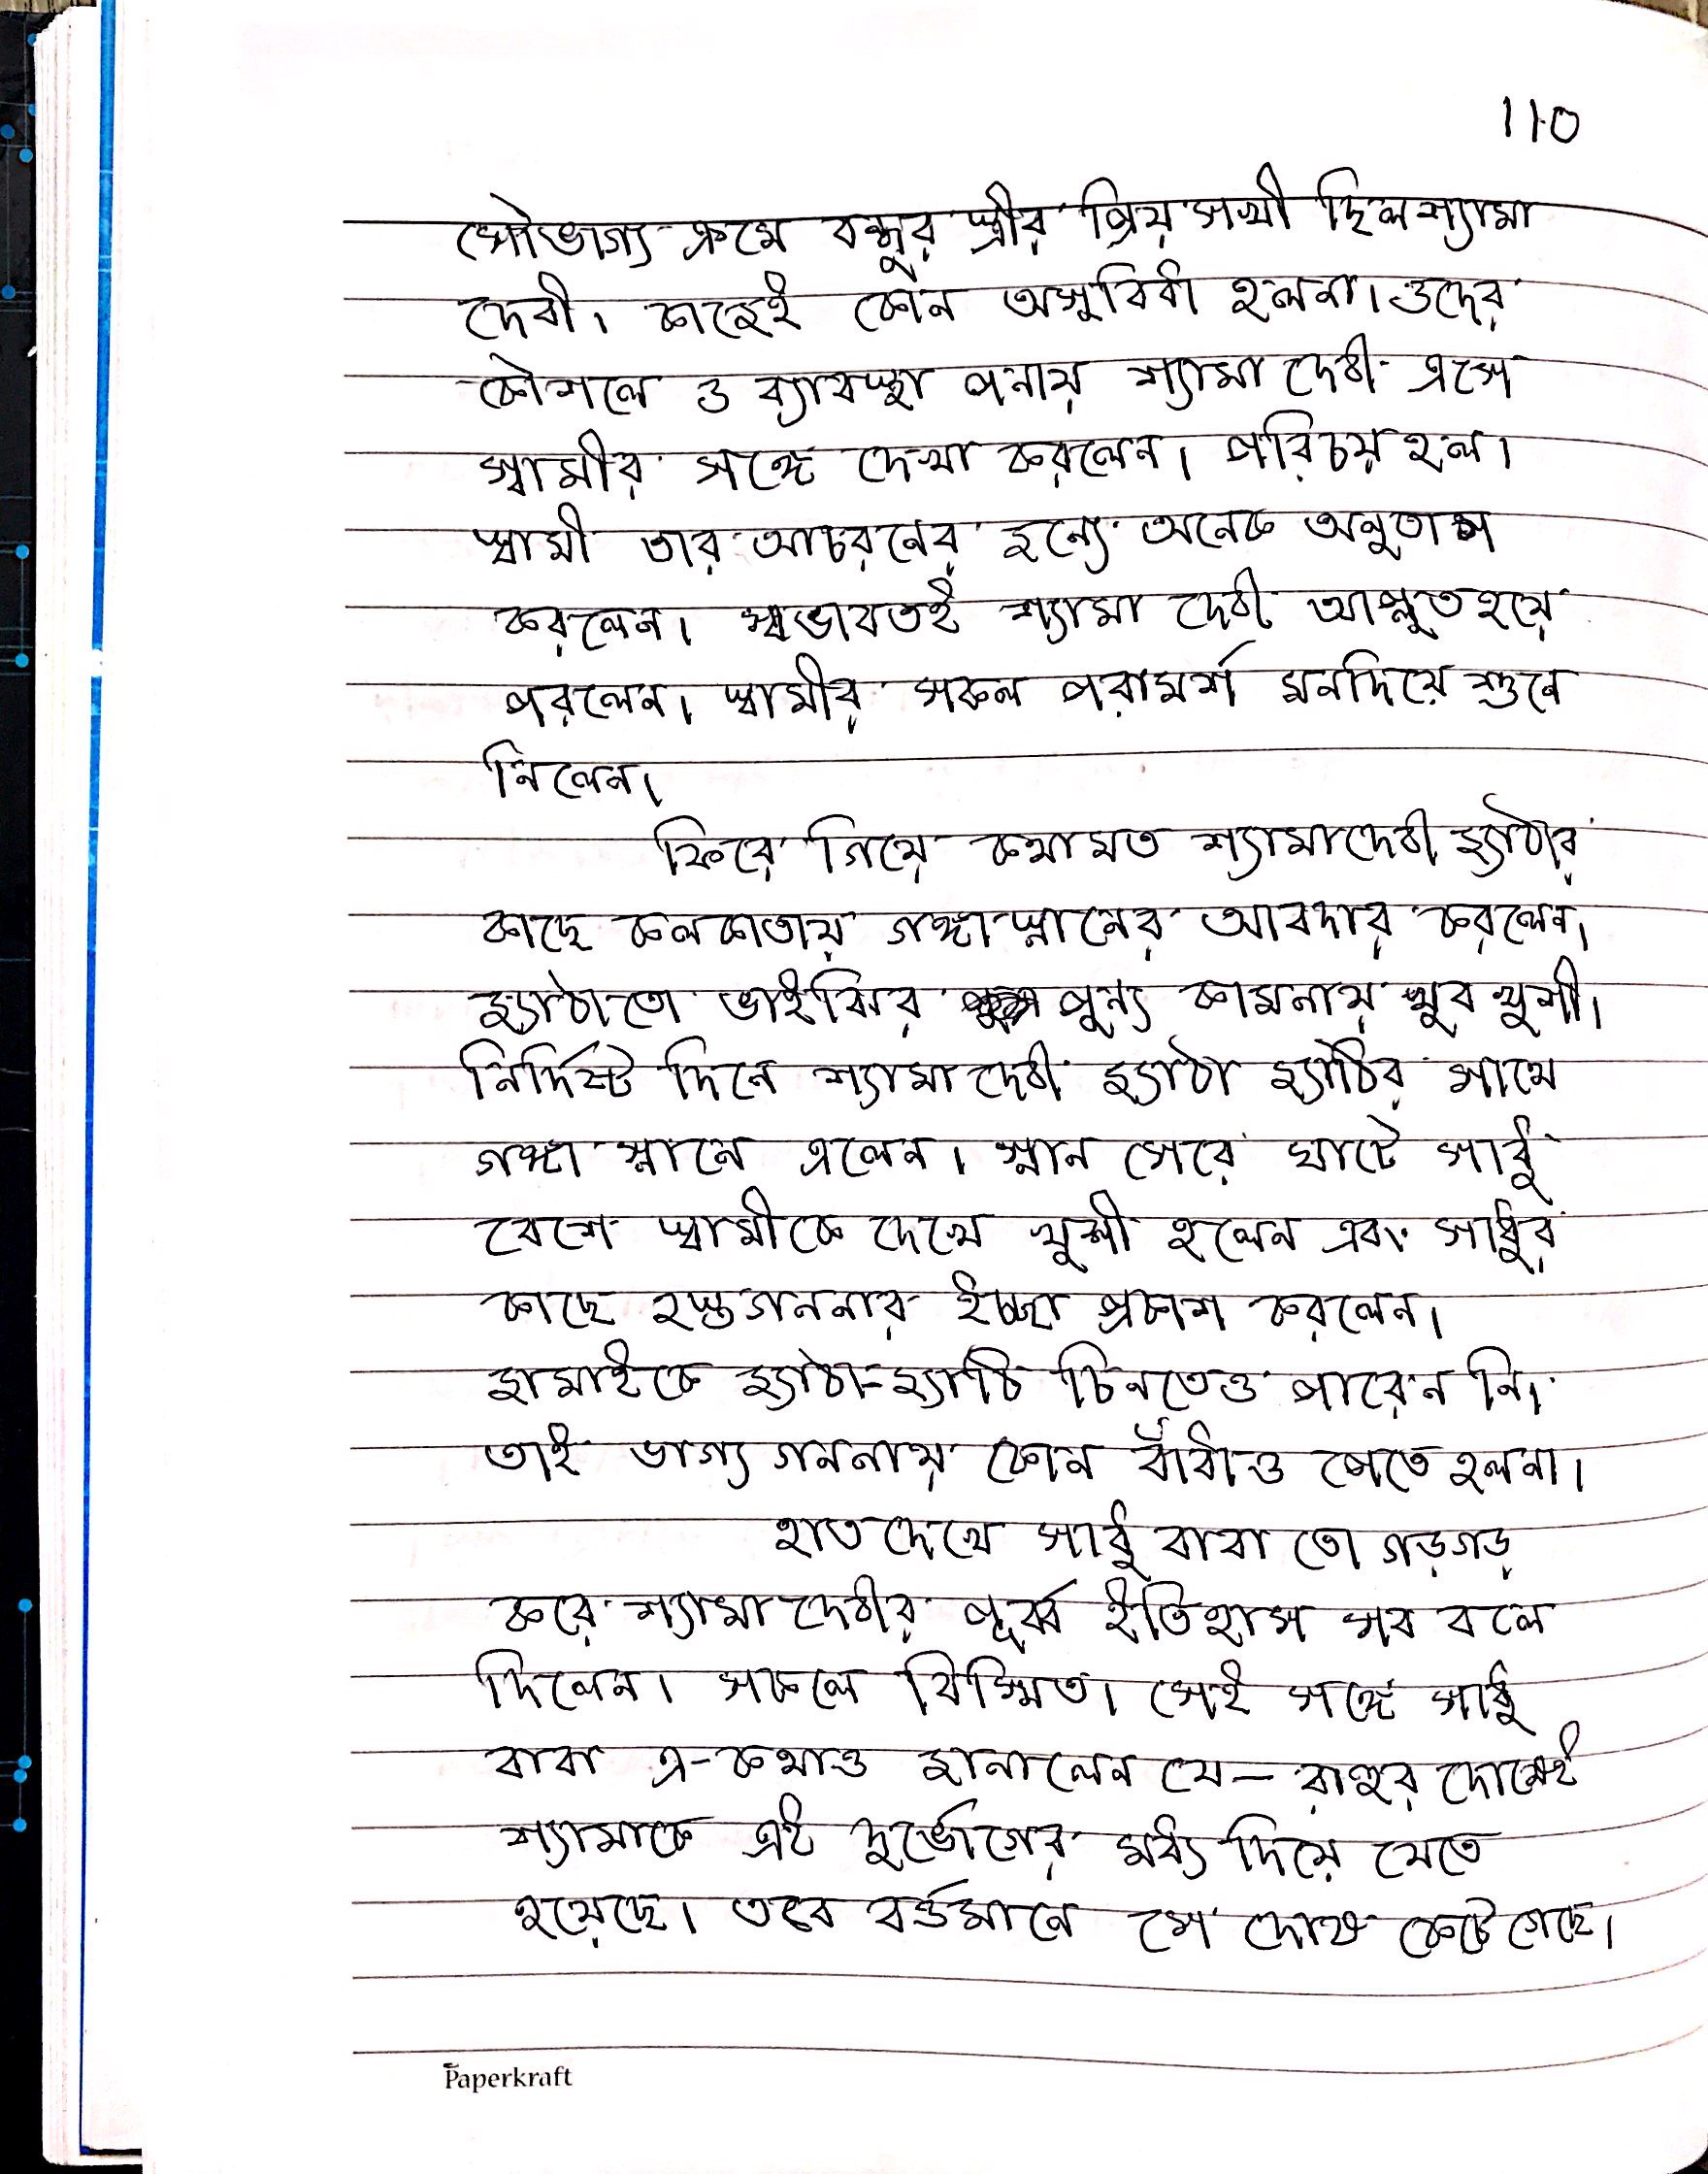 110
সৌভাগ্য ক্রমে বন্ধুর স্ত্রীর প্রিয় সখী ছিল শ্যামা
দেবী। কাজেই কোন অসুবিধা হলনা। ওদের
কৌশলে ও ব্যাবস্থা পনায় শ্যামা দেবী এসে
স্বামীর সঙ্গে দেখা করলেন। পরিচয় হল।
স্বামী তার আচরনের জন্যে অনেক অনুতাপ
করলেন। স্বভাবতই শ্যামা দেবী আপ্লুত হয়ে
পরলেন। স্বামীর সকল পরামর্শ মনদিয়ে শুনে
নিলেন।
ফিরে গিয়ে কথামত শ্যামাদেবী জ্যাঠার
কাছে কলকাতায় গঙ্গাস্নানের আবদার করলেন।
জ্যাঠাতো ভাইঝির পুন্য কামনায় খুব খুশী।
নির্দিস্ট দিনে শ্যামাদেবী জ্যাঠা জ্যাঠির সাথে
গঙ্গা স্নানে এলেন। স্নান সেরে ঘাটে সাধু
বেশে স্বামীকে দেখে খুশী হলেন এবং সাধুর
কাছে হস্তগননার ইচ্ছা প্রকাশ করলেন।
জামাইকে জ্যাঠা-জ্যাঠি চিনতেও পারেন নি।
তাই ভাগ্য গননায় কোন বাঁধাও পেতে হলনা।
হাত দেখে সাধু বাবা তো গড়গড়
করে শ্যামা দেবীর পূর্ব্ব ইতিহাস সব বলে
দিলেন। সকলে বিস্মিত। সেই সঙ্গে সাধু
বাবা এ-কথাও জানালেন যে- রাহুর দোষেই
শ্যামাকে এই দুর্ভোগের মধ্য দিয়ে যেতে
হয়েছে। তবে বর্ত্তমানে সে দোষ কেটে গেছে।
Paperkraft